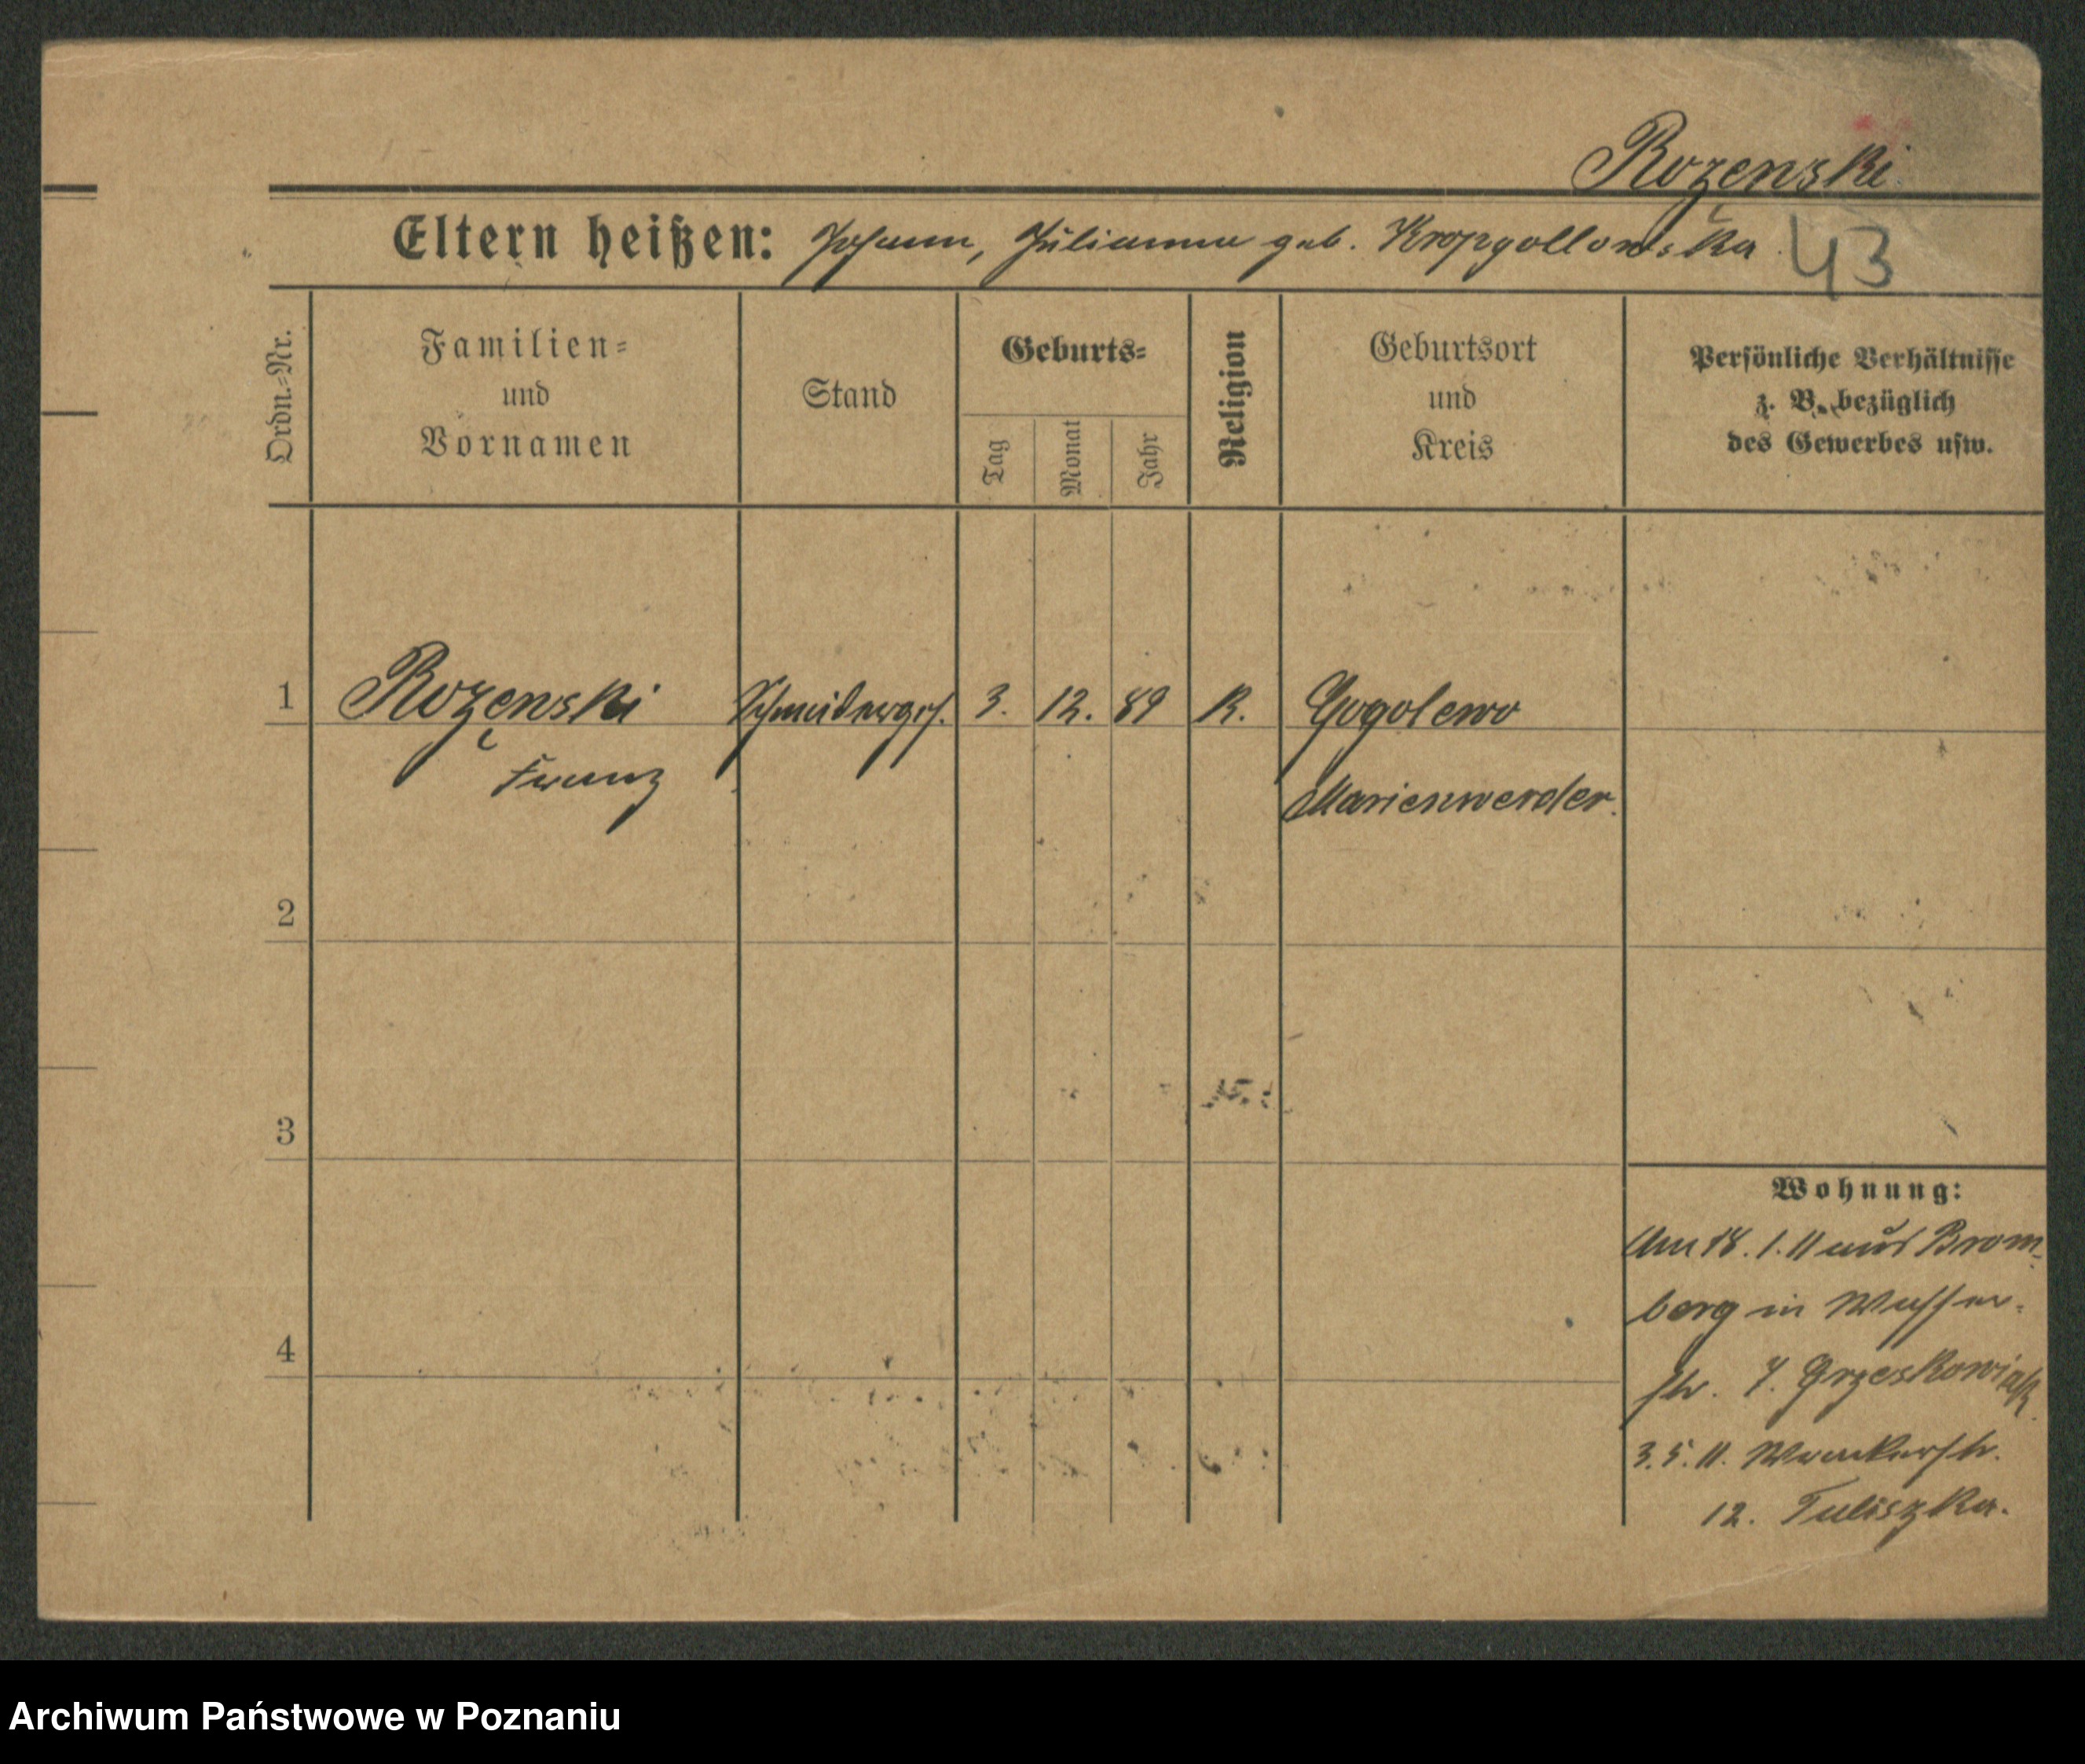 Rozenski.
Eltern heißen: Johann, Julianna geb. Kropgollowska
43
Ordn.=Nr.
Familien=
und
Vornamen
Stand
Geburts=
Tag
Monat
Jahr
Religion
Geburtsort
und
Kreis
Persönliche Verhältnisse
z. B. bezüglich
des Gewerbes usw.
1 Rozenski Schneiderges. 3. 12. 89 K. Gogolewo
Franz Marienwerder.
2
3
4
Wohnung:
Am 18. 1. 11 aus Brom-
berg in Wasser-
str. 7. Grzeskowiak
3. 5. 11. Wronkerstr.
12. Tuliszka.
Archiwum Państwowe w Poznaniu